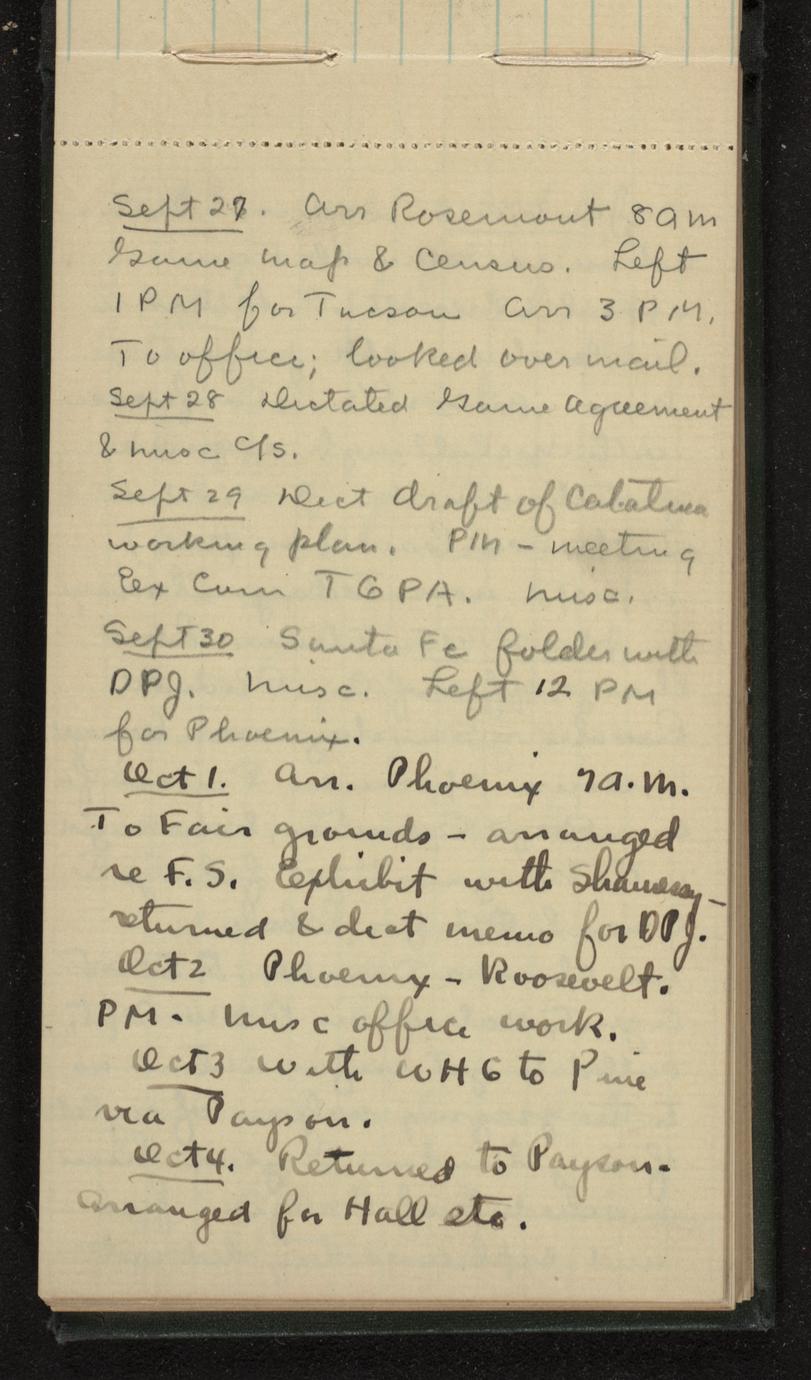 Sept 27. Arr Rosemont 8 am
Game map & Census. Left
1 PM for Tucson Arr 3 PM.
To office; looked over mail.
Sept 28 Dictated Game Agreement
& misc c/s.
Sept 29 Dict draft of Catalina
working plan. PM - meeting
Ex Com TGPA. misc.
Sept 30 Santa Fe folder with
DPJ. misc. Left 12 PM
for Phoenix.
Oct 1. Arr. Phoenix 7 a.m.
To Fair grounds - arranged
re F.S. Exhibit with
returned & dict memo for DPJ.
Oct 2 Phoenix - Roosevelt.
PM - misc office work.
Oct 3 with WHG to Pine
via Payson.
Oct 4. Returned to Payson -
arranged for Hall etc.